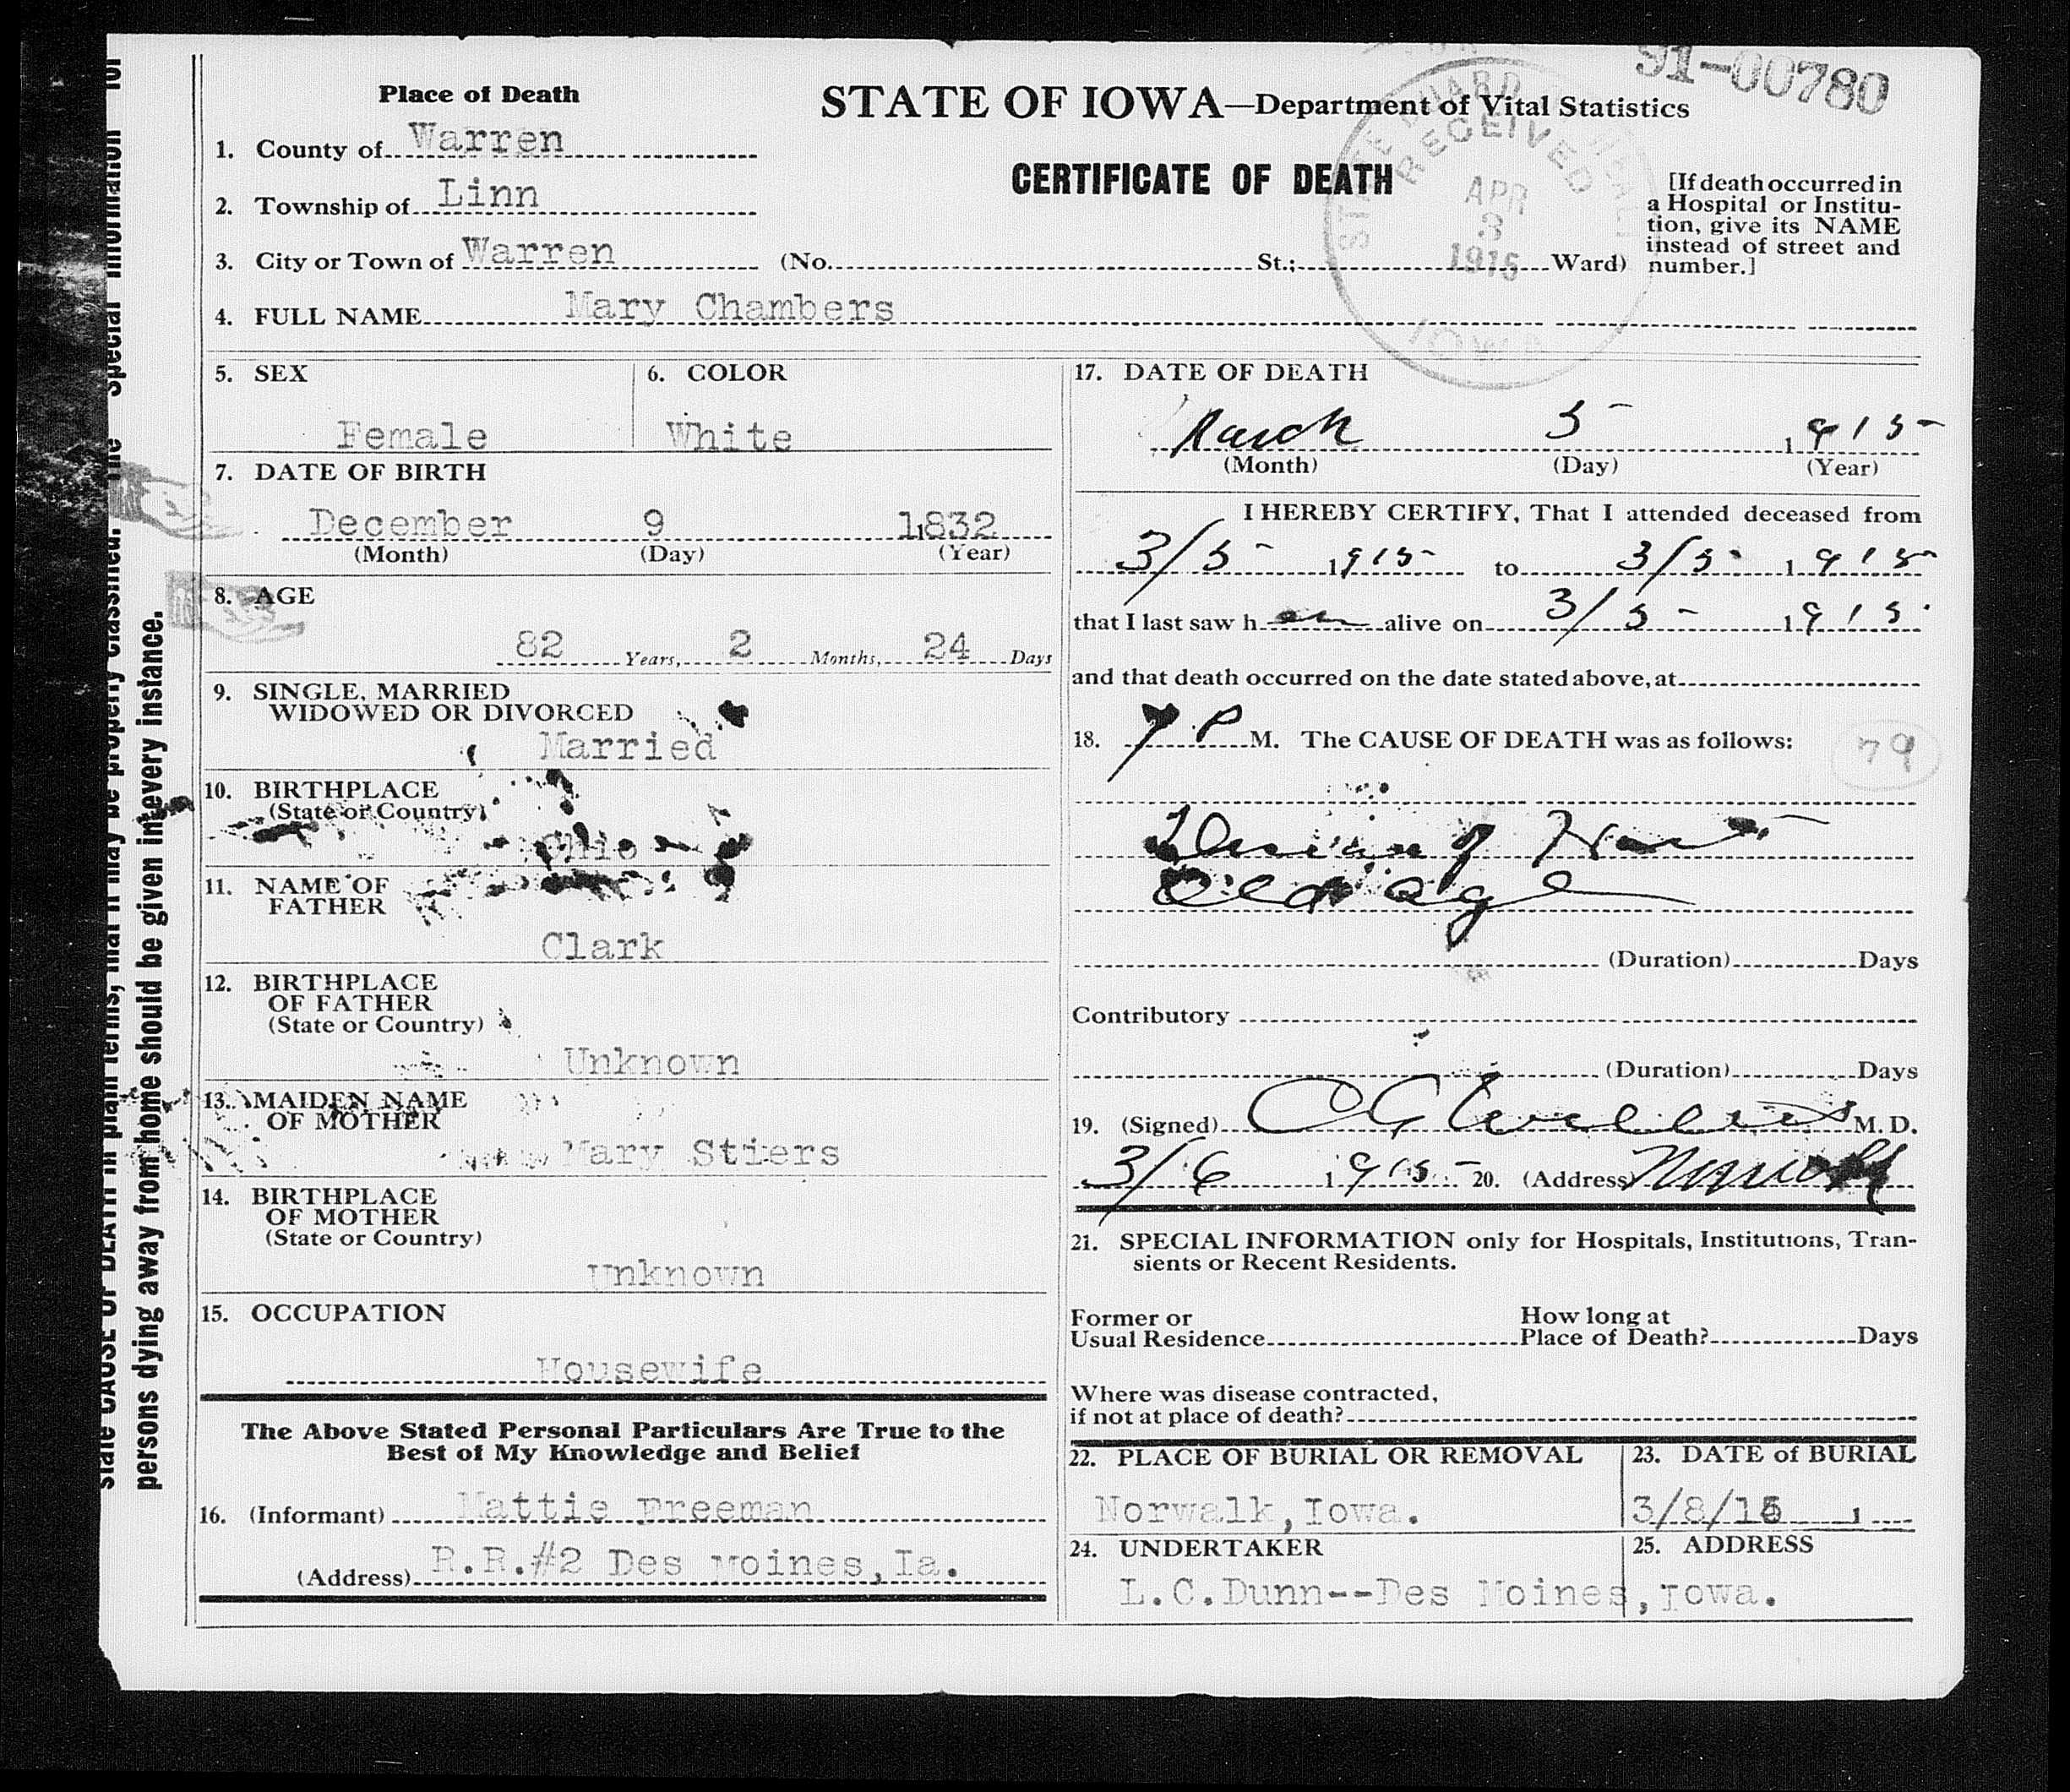 91-00780
Place of Death
STATE OF IOWA—Department of Vital Statistics
CERTIFICATE OF DEATH
STATE BOARD
RECEIVED
APR
3
1915
IOWA
1. County of Warren
2. Township of Linn
3. City or Town of Warren (No. St.; Ward)
[If death occurred in
a Hospital or Institu-
tion, give its NAME
instead of street and
number.]
4. FULL NAME Mary Chambers
5. SEX
Female
6. COLOR
White
7. DATE OF BIRTH
December 9 1832
(Month) (Day) (Year)
8. AGE
82 Years, 2 Months, 24 Days
9. SINGLE, MARRIED
WIDOWED OR DIVORCED
Married
10. BIRTHPLACE
(State or Country)
Ohio
11. NAME OF
FATHER
Clark
12. BIRTHPLACE
OF FATHER
(State or Country)
Unknown
13. MAIDEN NAME
OF MOTHER
Mary Stiers
14. BIRTHPLACE
OF MOTHER
(State or Country)
Unknown
15. OCCUPATION
Housewife
The Above Stated Personal Particulars Are True to the
Best of My Knowledge and Belief
16. (Informant) Mattie Freeman
(Address) R.R.#2 Des Moines, Ia.
17. DATE OF DEATH
March 5 1915
(Month) (Day) (Year)
I HEREBY CERTIFY, That I attended deceased from
3/5 1915 to 3/5 1915
that I last saw her alive on 3/5 1915
and that death occurred on the date stated above, at
18. 7 P M. The CAUSE OF DEATH was as follows:
79
of Heart
Old Age
(Duration) Days
Contributory
(Duration) Days
19. (Signed) M. D.
3/6 1915 20. (Address) Norwalk
21. SPECIAL INFORMATION only for Hospitals, Institutions, Tran-
sients or Recent Residents.
Former or
Usual Residence
How long at
Place of Death? Days
Where was disease contracted,
if not at place of death?
22. PLACE OF BURIAL OR REMOVAL
Norwalk, Iowa.
23. DATE of BURIAL
3/8/15 1
24. UNDERTAKER
25. ADDRESS
L.C.Dunn--Des Moines, Iowa.
state CAUSE OF DEATH in plain terms, that it may be properly classified. The Special Information for
persons dying away from home should be given in every instance.